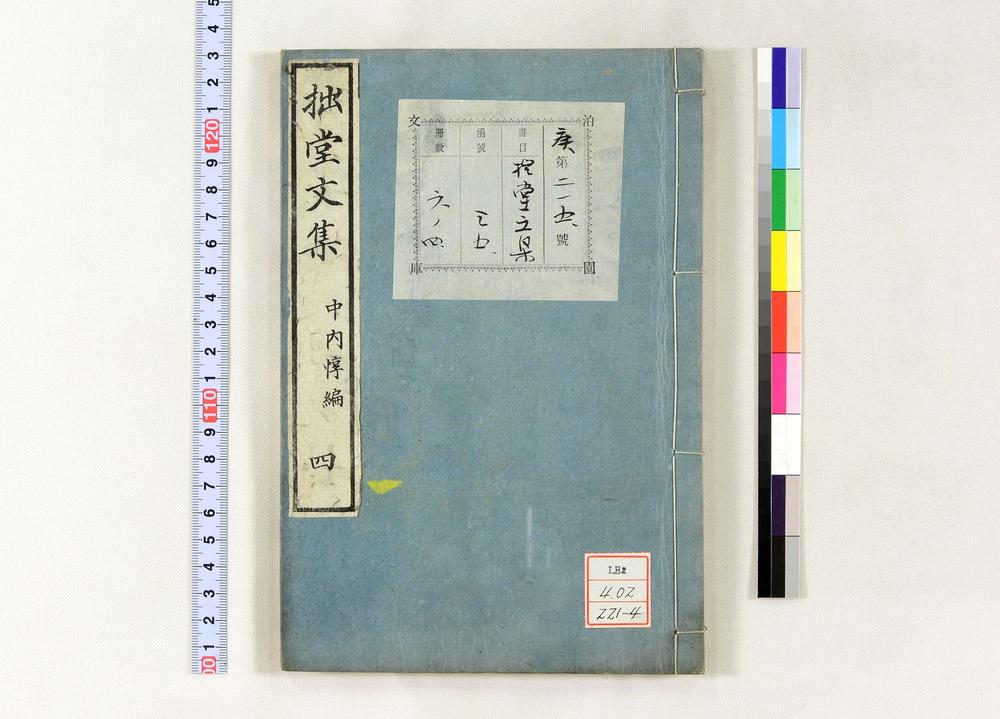 拙堂文集
中内惇編
四
泊園文庫
第二一五號
書目 拙堂文集
函號 三五
冊數 六ノ四
LH2
4.02
221-4
5
4
3
2
1
120
9
8
7
6
5
4
3
2
1
110
9
8
7
6
5
4
3
2
1